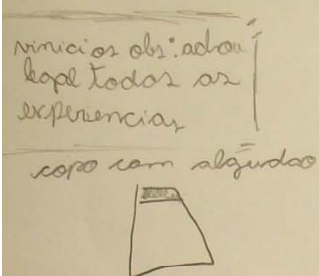 vinicios obs: achou
legal todas as
experiencias
copo com algudão